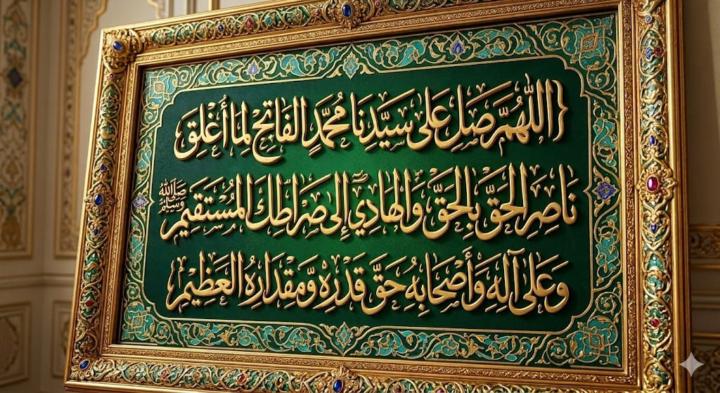 {اللَّهُمَّ صَلِّ عَلَى سَيِّدِنَا مُحَمَّدٍ الفَاتِحِ لِمَا أُغْلِقَ
نَاصِرِ الحَقِّ بِالحَقِّ وَالهَادِي إِلَى صِرَاطِكَ المُسْتَقِيمِ ﷺ
وَعَلَى آلِهِ وَأَصْحَابِهِ حَقَّ قَدْرِهِ وَمِقْدَارِهُ العَظِيمِ